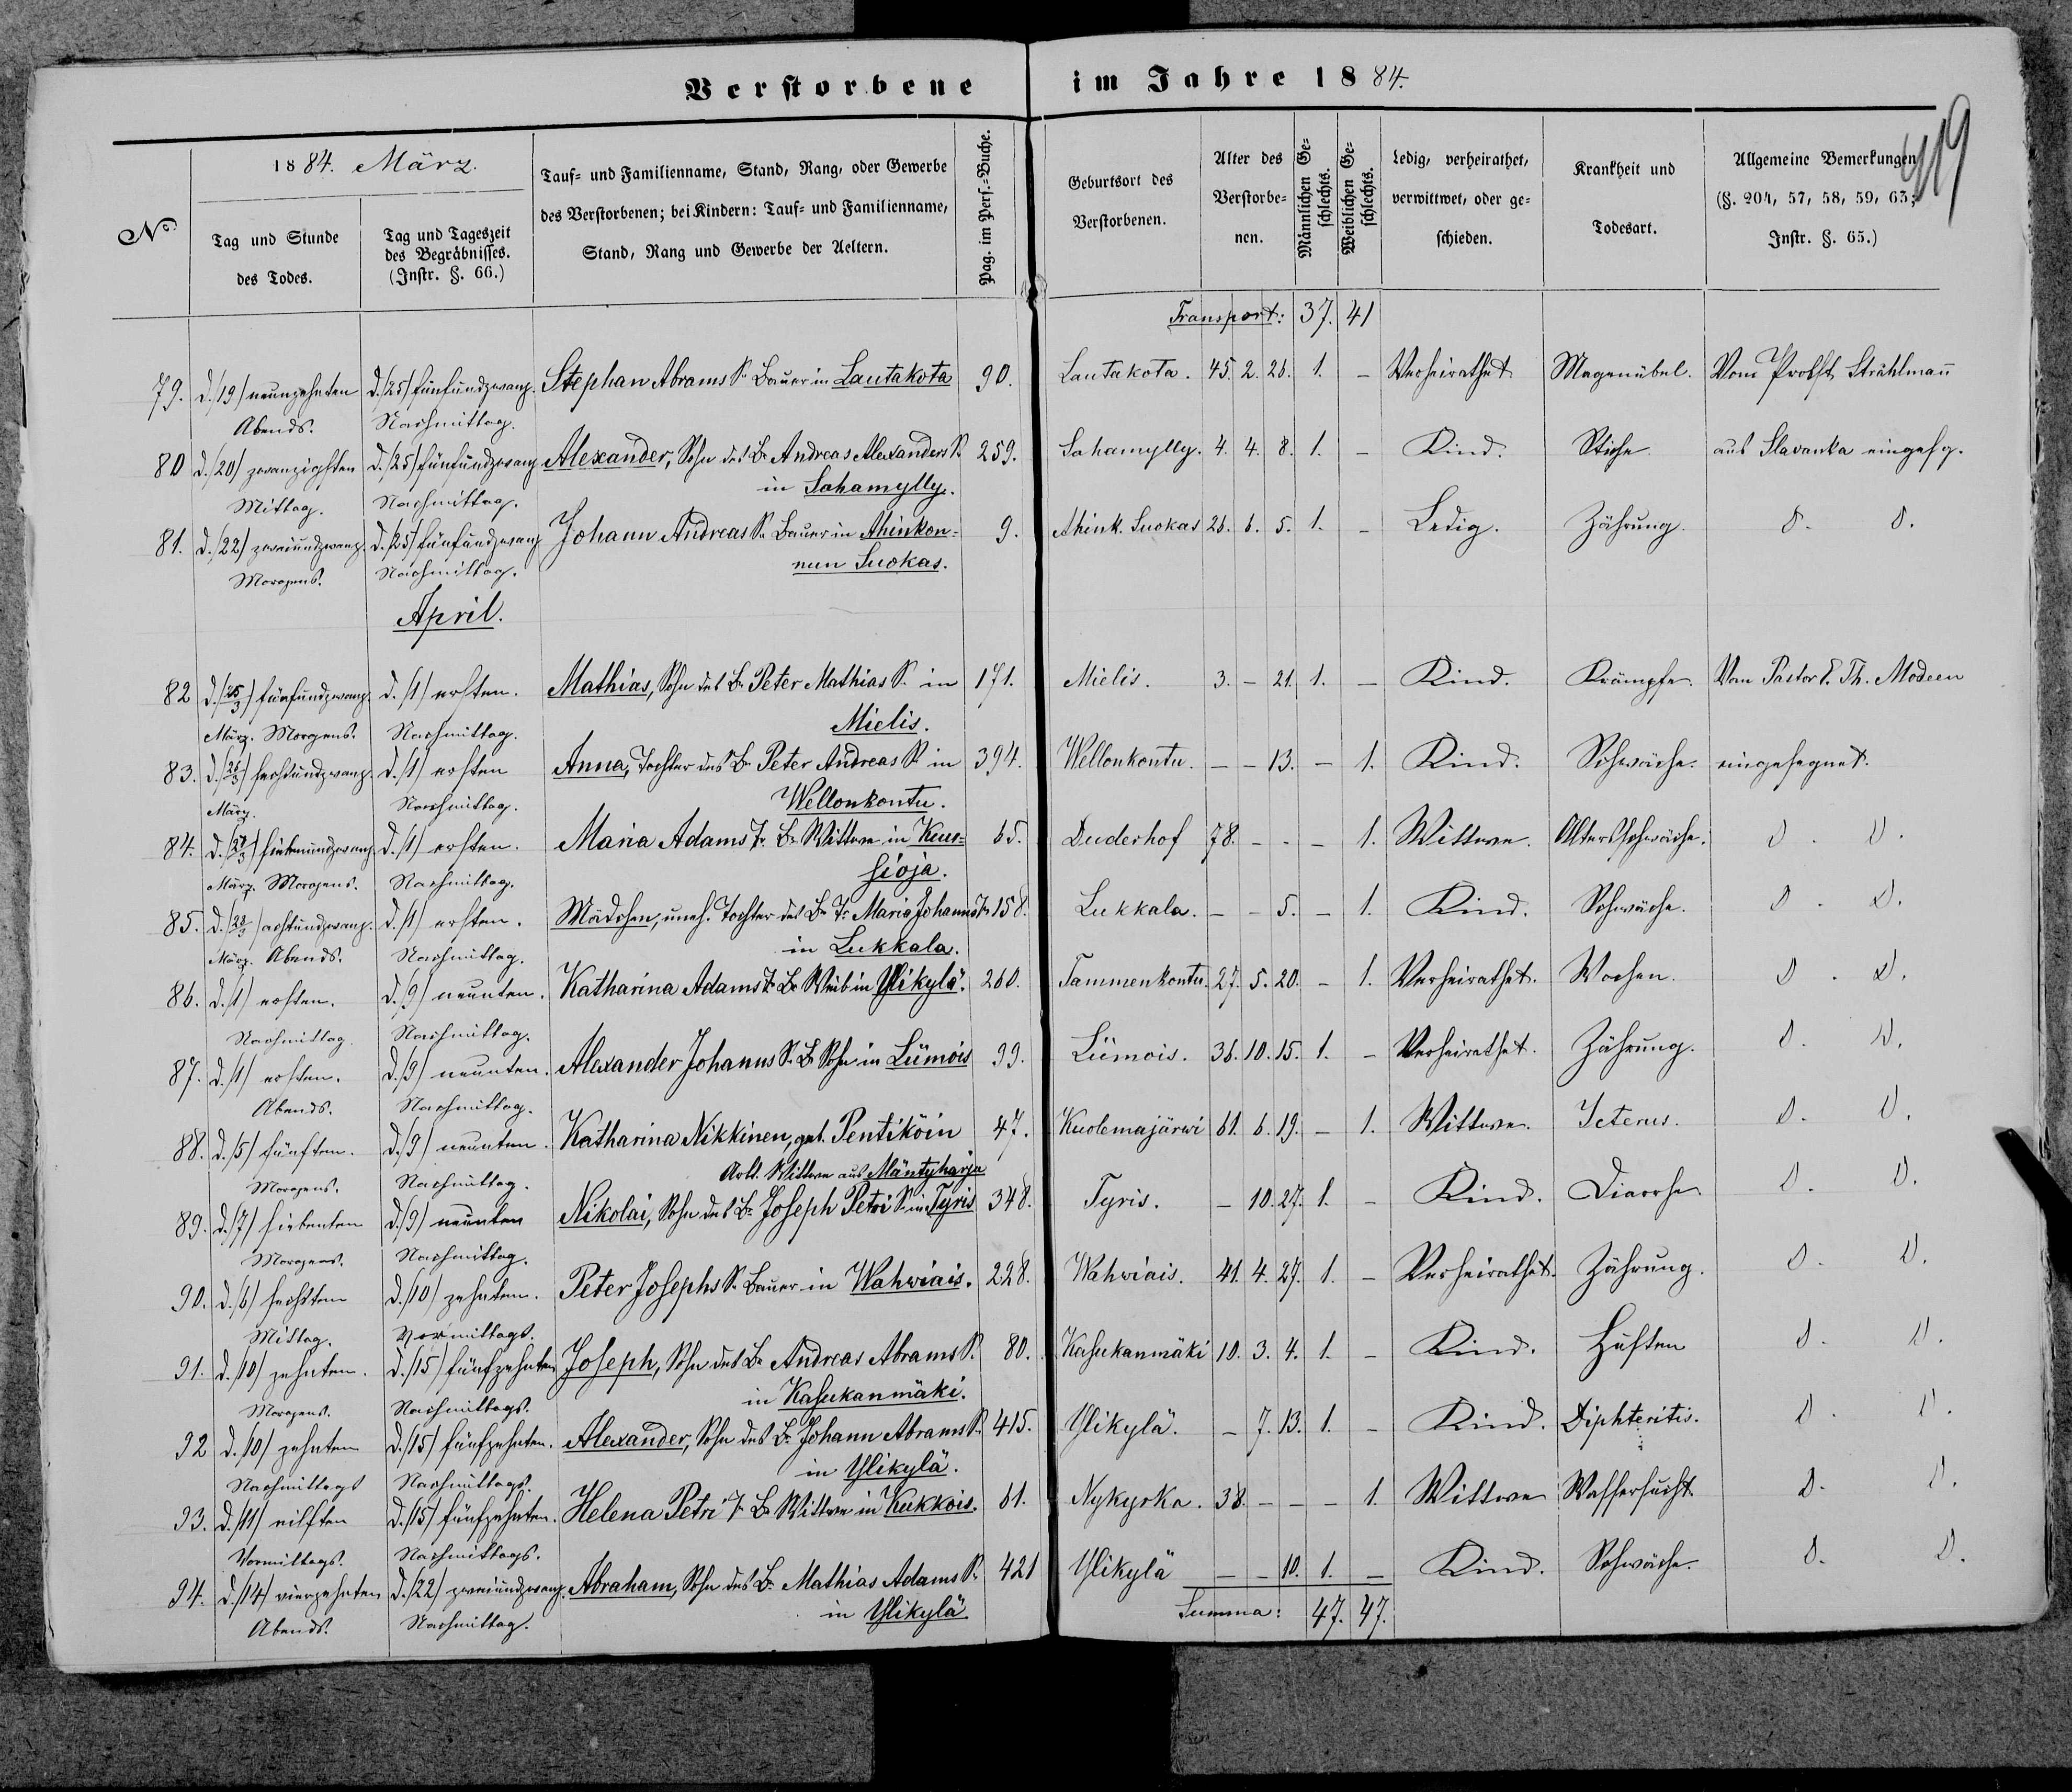 Verstorbene im Jahre 1884.
419
No
1884. März.
Tag und Stunde des Todes.
Tag und Tageszeit des Begräbnisses. (Instr. §. 66.)
Tauf- und Familienname, Stand, Rang, oder Gewerbe des Verstorbenen; bei Kindern: Tauf- und Familienname, Stand, Rang und Gewerbe der Aeltern.
Pag. im Pers.-Buche.
Geburtsort des Verstorbenen.
Alter des Verstorbenen.
Männlichen Geschlechts.
Weiblichen Geschlechts.
Ledig, verheirathet, verwittwet, oder geschieden.
Krankheit und Todesart.
Allgemeine Bemerkungen (§. 204, 57, 58, 59, 63; Instr. §. 65.)
Transport: 37. 41
79. d. (19) neunzehnten d. (25) fünfundzwanz. Stephan Abrams S. Bauer in Lautakota 90. Lautakota. 45. 2. 26. 1. – Verheirathet Magenübel. Vom Probst Strählmañ
Abends. Nachmittag.
80 d. (20) zwanzigsten d. (25) fünfundzwanz Alexander, Sohn des Br. Andreas Alexanders S. 259. Sahamylly. 4. 4. 8. 1. – Kind. Stiche aus Slavanka eingesg.
Mittag. Nachmittag. in Sahamylly.
81. d. (22) zweiundzwanz. d. (25) fünfundzwanz Johann Andreas S. Bauer in Ahinkon- 9. Ahink. Suokas 26. 6. 5. 1. – Ledig. Zährung. D. D.
Morgens. Nachmittag. nen Suokas.
April.
82 d. (25/3) fünfundzwanz. d. (1) ersten. Mathias, Sohn des Br. Peter Mathias S. in 171. Mielis. 3. – 21. 1. – Kind. Krämpfe. Von Pastor E. Th. Modeen
März. Morgens. Nachmittag. Mielis.
83. d. (26/3) sechsundzwanz. d. (1) ersten Anna, Tochter des Br. Peter Andreas S. in 394. Wellonkontu. – – 13. – 1. Kind. Schwäche. eingesegnet.
März. Nachmittag. Wellonkontu.
84. d. (27/3) siebenundzwanz. d. (1) ersten. Maria Adams Tr. Br. Wittwe in Keus- 65. Duderhof 78. – – – 1. Wittwe. Altersschwäche. D. D.
März. Morgens. Nachmittag. sioja.
85. d. (28/3) achtundzwanz. d. (1) ersten. Mädchen, uneh. Tochter der Br. Tr. Maria Johanns Tr. 158. Lukkala. – – 5. – 1. Kind. Schwäche. D. D.
März. Abends. Nachmittag. in Lukkala.
86. d. (1) ersten. d. (9) neunten. Katharina Adams Tr. Br. Weib in Ylikylä. 260. Tammenkontu. 27. 5. 20. – 1. Verheirathet. Wochen. D. D.
Nachmittag. Nachmittag.
87. d. (1) ersten. d. (9) neunten. Alexander Johanns S. Br. Sohn in Liimois 99. Liimois. 36. 10. 15. 1. – Verheirathet. Zährung. D. D.
Abends. Nachmittag.
88. d. (5) fünften. d. (9) neunten. Katharina Nikkinen, geb. Pentiköin 47. Kuolemajärwi 61. 6. 19. – 1. Wittwe. Icterus. D. D.
Morgens. Nachmittag. Arb. Wittwe aus Mäntyharja
89. d. (7) siebenten d. (9) neunten Nikolai, Sohn des Br. Joseph Petri S. in Tyris 348. Tyris. – 10. 27. 1. – Kind. Diarrhe. D. D.
Morgens. Nachmittag.
90. d. (6) sechsten d. (10) zehnten. Peter Josephs S. Bauer in Wahwiais. 228. Wahwiais. 41. 4. 27. 1. – Verheirathet. Zährung. D. D.
Mittag. Vormittags.
91. d. (10) zehnten. d. (15) fünfzehnten Joseph, Sohn des Br. Andreas Abrams S. 80. Kasukanmäki 10. 3. 4. 1. – Kind. Husten D. D.
Morgens. Nachmittags. in Kasukanmäki.
92 d. (10) zehnten d. (15) fünfzehnten. Alexander, Sohn des Br. Johann Abrams S. 415. Ylikylä. – 7. 13. 1. – Kind. Diphteritis. D. D.
Nachmittags Nachmittags. in Ylikylä.
93. d. (11) eilften d. (15) fünfzehnten. Helena Petri Tr. Br. Wittwe in Kukkois. 61. Nykyrka. 38. – – – 1. Wittwe Wassersucht D. D.
Vormittags. Nachmittags.
94. d. (14) vierzehnten d. (22) zweiundzwanz. Abraham, Sohn des Br. Mathias Adams S. 421 Ylikylä – – 10. 1. – Kind. Schwäche. D. D.
Abends. Nachmittag. in Ylikylä
Summa: 47. 47.